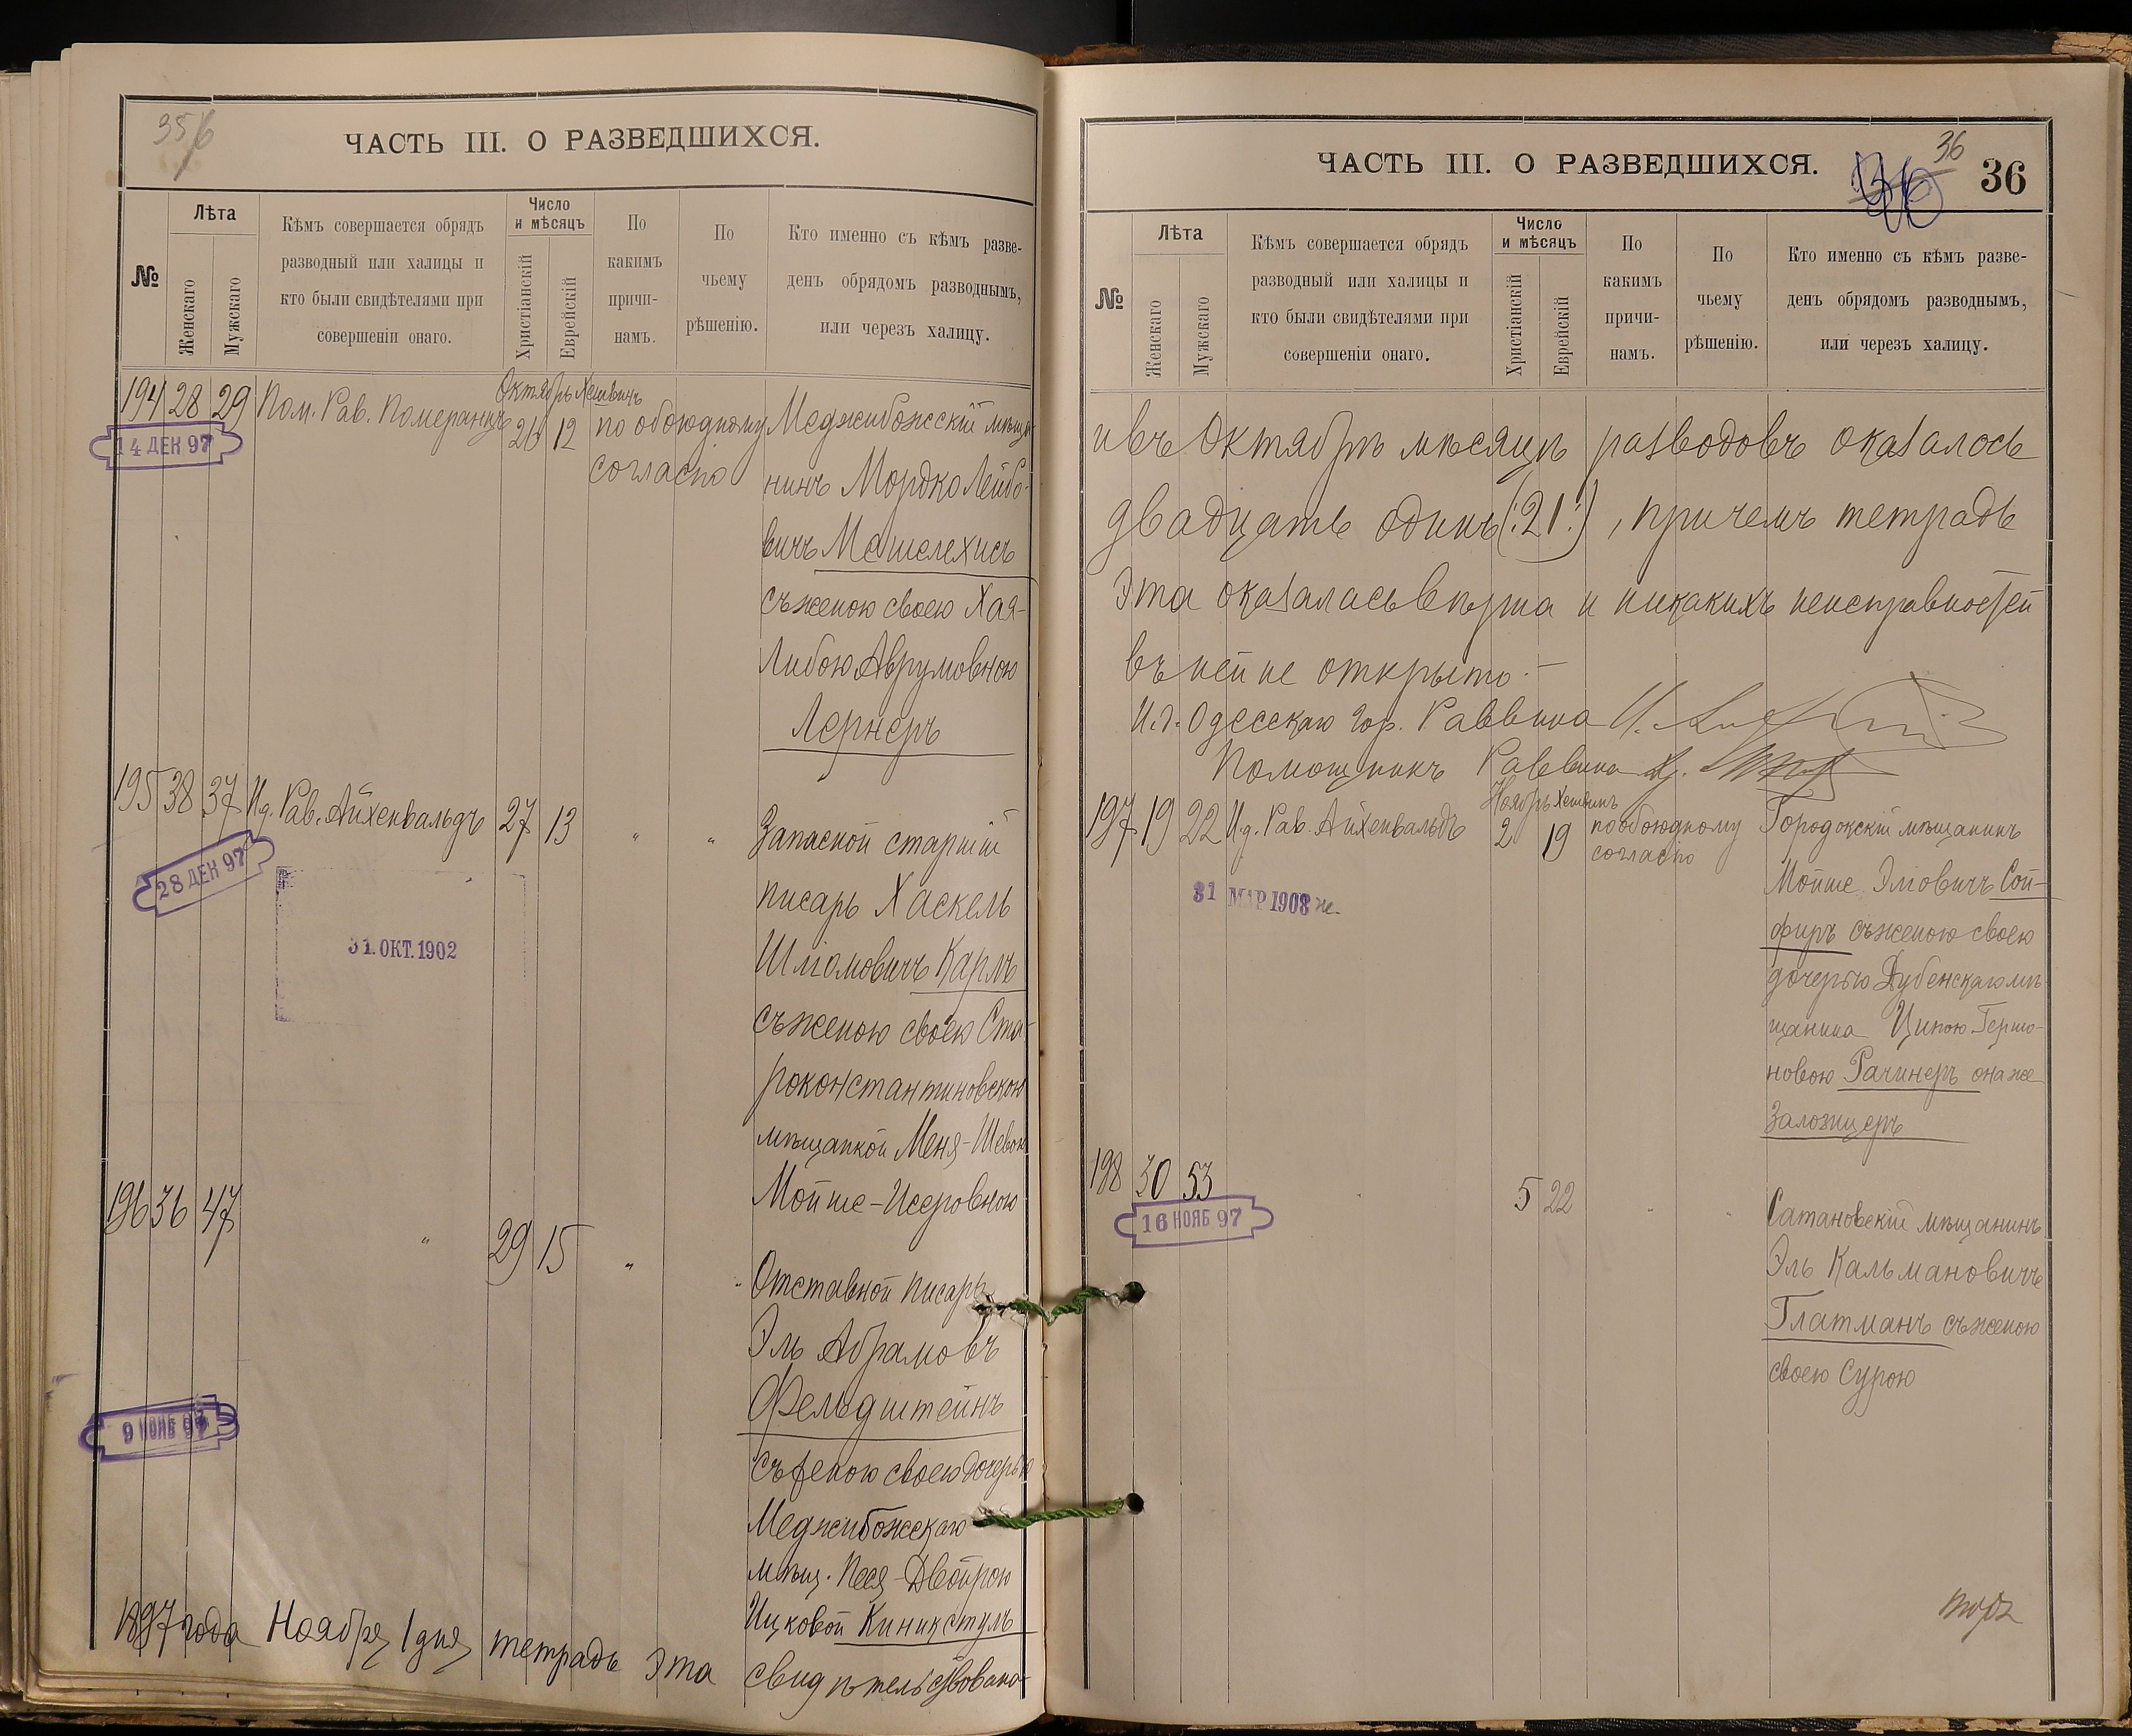 356
ЧАСТЬ III. О РАЗВЕДШИХСЯ.
№
Лѣта
Женскаго
Мужскаго
Кѣмъ совершается обрядъ
разводный или халицы и
кто были свидѣтелями при
совершеніи онаго.
Число
и мѣсяцъ
Христіанскій
Еврейскій
По
какимъ
причи-
намъ.
По
чьему
рѣшенію.
Кто именно съ кѣмъ разве-
денъ обрядомъ разводнымъ,
или черезъ халицу.
Октябрь Хешвинъ
194 28 29 Пом. Рав. Померанцъ 26 12 по обоюдному Меджибожсскій мѣща-
14 ДЕК 97
согласію
нинъ Мордко Лейбо-
вичъ Мешелехисъ
съ женою своею Хая-
Либою Аврумовною
Лернеръ
195 38 37 И.д. Рав. Айхенвальдъ 27 13 " " Запасной старшій
28 ДЕК 97
писарь Хаскель
31.ОКТ.1902
Шліомовичъ Карпъ
съ женою своею Ста-
роконстантиновскою
мѣщанкой Меня-Шевою
Мойше-Исеровною
196 36 47 " 29 15 " " Отставной писарь
Эль Абрамовъ
Фельдштейнъ
9 НОЯБ 97
съ женою своею дочерью
Меджибожскаго
мѣщ. Песя-Двойрою
Ицковой Киникстулъ
1897 года Ноября 1 дня тетрадь эта свидѣтельствована
ЧАСТЬ III. О РАЗВЕДШИХСЯ.
36
36
№
Лѣта
Женскаго
Мужскаго
Кѣмъ совершается обрядъ
разводный или халицы и
кто были свидѣтелями при
совершеніи онаго.
Число
и мѣсяцъ
Христіанскій
Еврейскій
По
какимъ
причи-
намъ.
По
чьему
рѣшенію.
Кто именно съ кѣмъ разве-
денъ обрядомъ разводнымъ,
или черезъ халицу.
и въ Октябрѣ мѣсяцѣ разводовъ оказалось
двадцать одинъ (:21:), причемъ тетрадь
эта оказалась вѣрна и никакихъ неисправностей
въ ней не открыто.-
И.д. Одесскаго Гор. Раввина
Помощникъ Раввина
Ноябрь Хешвинъ
197 19 22 И.д. Рав. Айхенвальдъ 2 19 по обоюдному Городокскій мѣщанинъ
согласію
31 МАР 1908
Мойше Эліовичъ Сой-
феръ съ женою своею
дочерью Дубенскаго мѣ-
щанина Ципою Гершо-
новою Рачинеръ она же
Заложцеръ
198 30 53 5 22 " " Сатановскій мѣщанинъ
16 НОЯБ 97
Эль Кальмановичъ
Глатманъ съ женою
своею Сурою